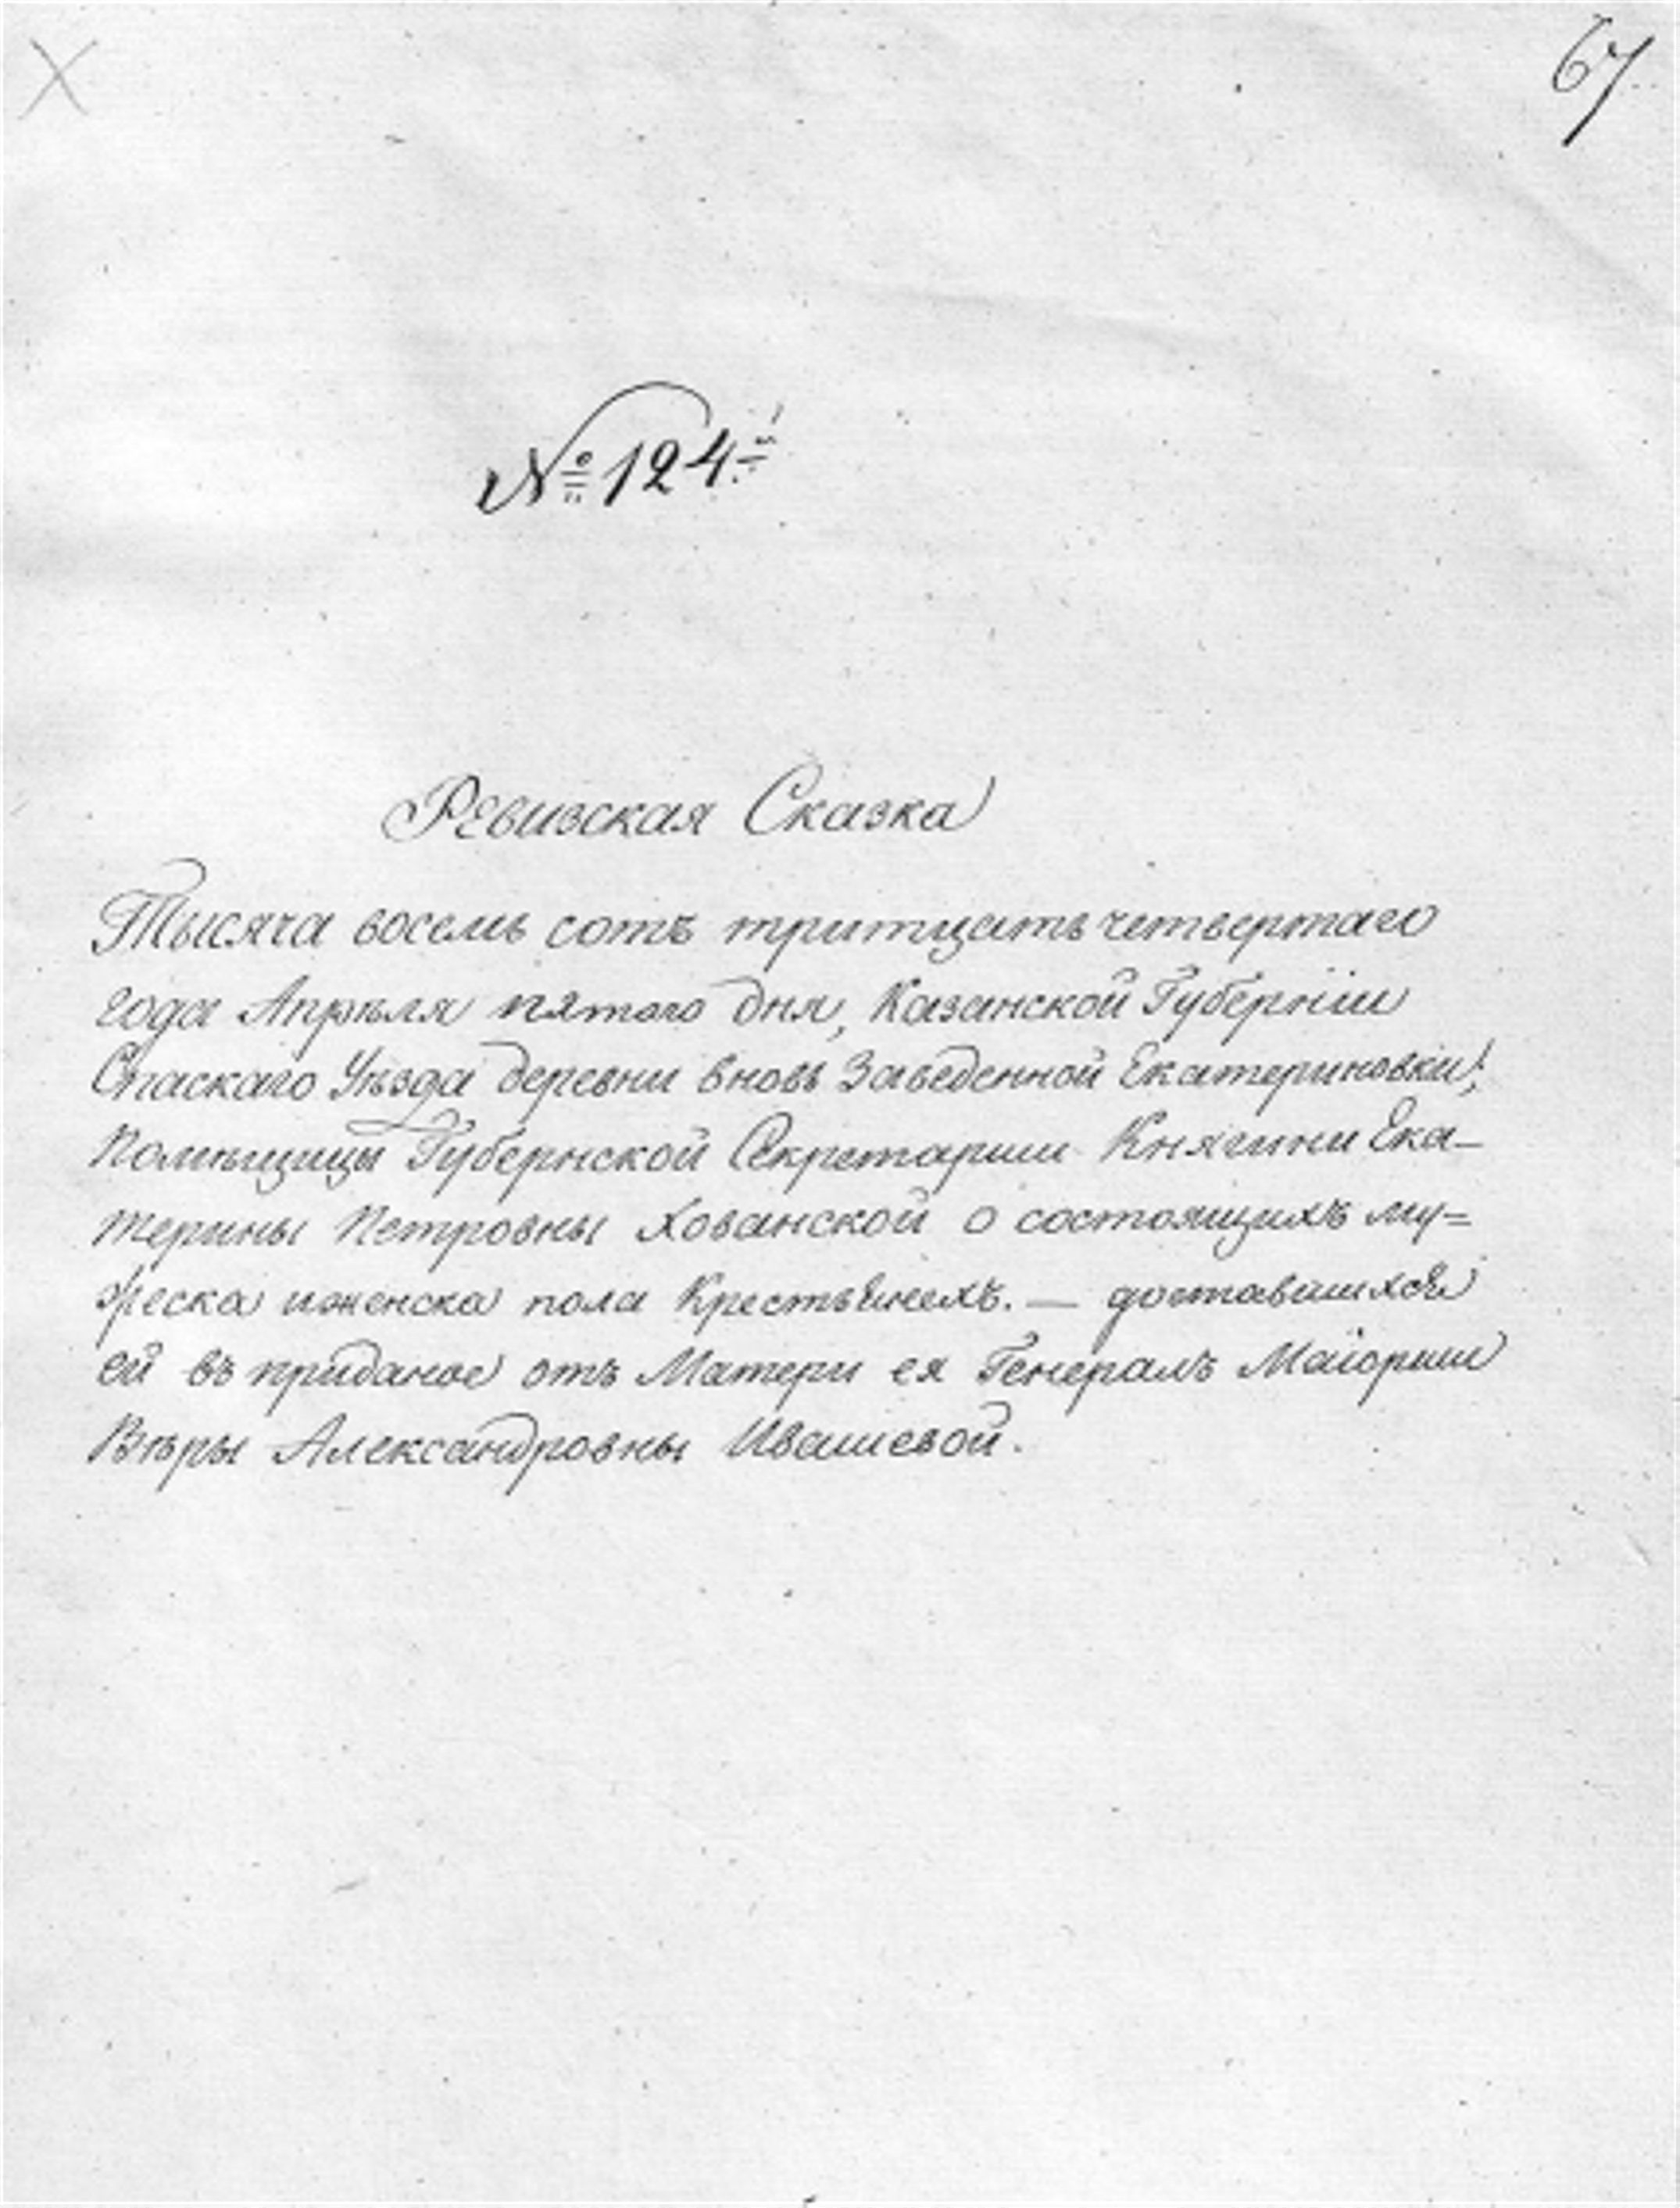 67
№ 124.
Ревизская Сказка
Тысяча восемь сотъ тритцать четвертаго
года Апрѣля пятого дня, Казанской Губернïи
Спаскаго Уѣзда деревни вновь Заведенной Екатериновки,
Помѣщицы Губернской Секретарши Княгини Ека-
терины Петровны Хованской о состоящихъ му=
жеска иженска пола Крестьянехъ. — доставшихся
ей въ приданое отъ Матери ея Генералъ Маïорши
Вѣры Александровны Ивашевой.